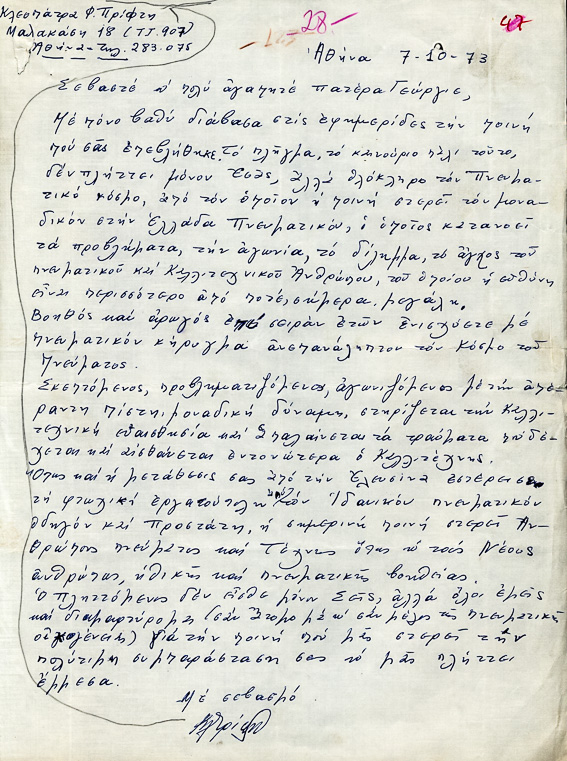 Κλεοπάτρα Φ. Πρίφτη
Μαλακάση 18 (ΤΤ. 907)
Ἀθήνα - τηλ. 283.075
28-
47
Ἀθήνα 7-10-73
Σεβαστέ κ' πολύ ἀγαπητέ Πατέρα Γεώργιε,
Μέ πόνο βαθύ διάβασα στίς ἐφημερίδες τήν ποινή
πού σᾶς ἐπεβλήθηκε. Τό πλῆγμα, τό καινούριο πάλι τοῦτο,
δέν πλήττει μόνον Ἐσᾶς, ἀλλά ὁλόκληρο τόν Πνευμα-
τικό κόσμο, ἀπό τόν ὁποῖον ἡ ποινή στερεῖ τόν μονα-
δικόν στήν Ἑλλάδα Πνευματικόν, ὁ ὁποῖος κατανοεῖ
τά προβλήματα, τήν ἀγωνία, τό δίλημμα, τό ἄγχος τοῦ
πνευματικοῦ καί Καλλιτεχνικοῦ Ἀνθρώπου, τοῦ ὁποίου ἡ εὐθύνη
εἶναι περισσότερο ἀπό ποτέ, σήμερα, μεγάλη.
Βοηθός καί ἀρωγός ἐπί σειράν ἐτῶν ἐνισχύσατε μέ
πνευματικόν κήρυγμα ἀνεπανάληπτον τόν Κόσμο τοῦ
Πνεύματος.
Σκεπτόμενος, προβληματιζόμενος, ἀγωνιζόμενος μέ τήν ἀπέ-
ραντη πίστη, μοναδική δύναμη, στηρίζεται τήν Καλλι-
τεχνική εὐαισθησία καί ἁπαλαίνεται τά τραύματα πού δέ-
χεται καί αἰσθάνεται ἐντονώτερα ὁ Καλλιτέχνης.
Ὅπως καί ἡ μετάθεσις σας ἀπό τήν Ἐλευσῖνα ἐστέρησε
τή φτωχική ἐργατούπολη ἀπό τόν Ἰδανικόν πνευματικόν
ὁδηγόν καί Προστάτη, ἡ σημερινή ποινή στερεῖ Ἀν-
θρώπους πνεύματος καί Τέχνης ὅπως κ' τούς Νέους
ἀνθρώπους, ἠθικῆς καί πνευματικῆς βοηθείας.
Ὁ πληττόμενος δέν εἶσθε μόνον Σεῖς, ἀλλά ὅλοι ἐμεῖς
καί διαμαρτύρομαι (σάν ἄτομο μέ κ' σάν μέλος τῆς πνευματικῆς
οἰκογένειας) γιά τήν ποινή πού μᾶς στερεῖ τήν
πολύτιμη συμπαράσταση σας κ' μᾶς πλήττει
ἔμμεσα.
Μέ σεβασμό
ΚΠρίφτη